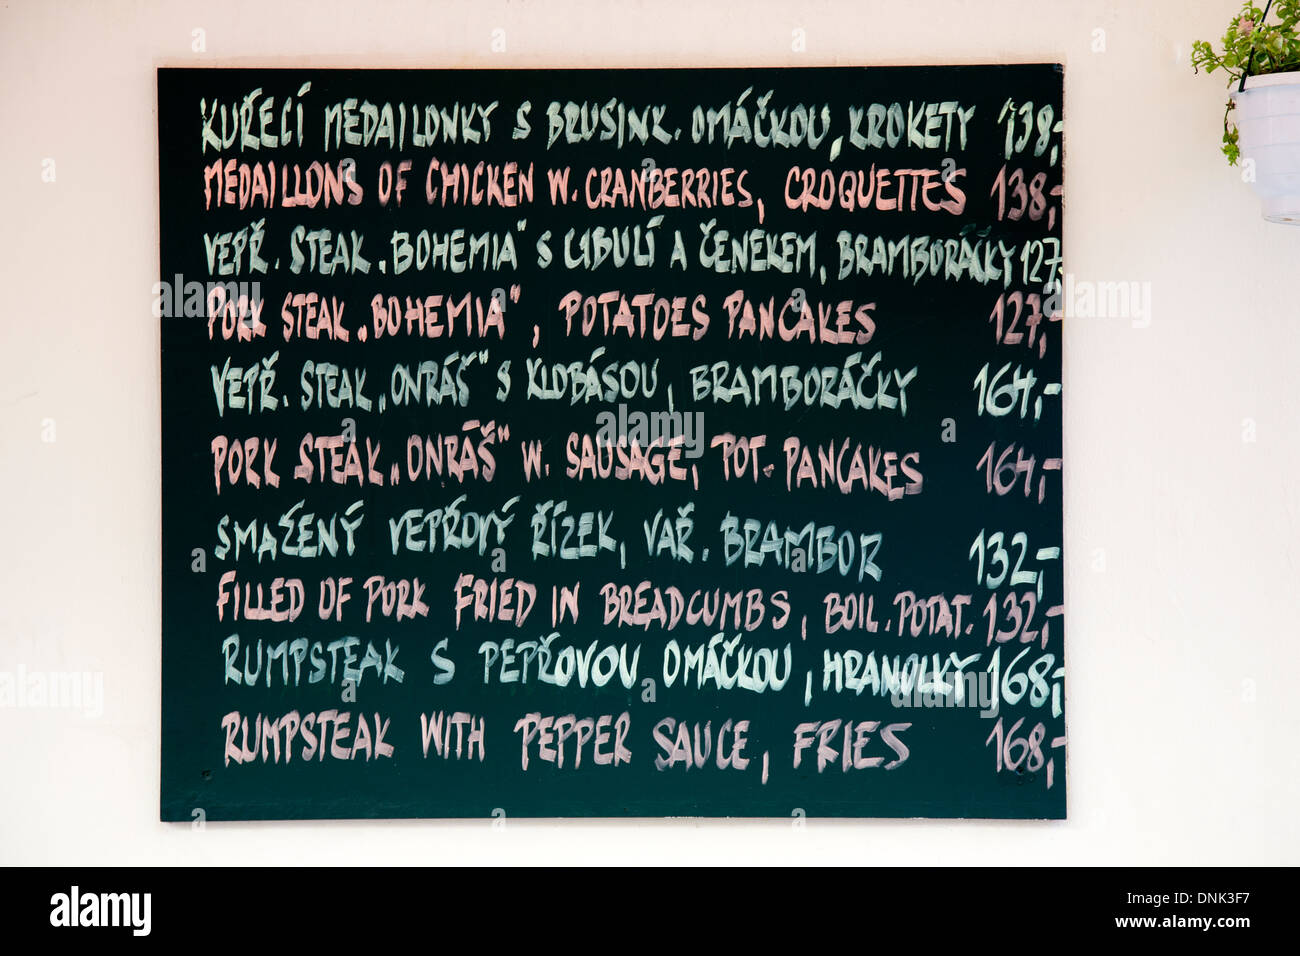 KUŘECÍ MEDAILONKY S BRUSINK. OMÁČKOU, KROKETY 138,-
MEDAILLONS OF CHICKEN W. CRANBERRIES, CROQUETTES 138,-
VEPŘ. STEAK „BOHEMIA" S CIBULÍ A ČENEKEM, BRAMBORÁČKY 127,-
PORK STEAK „BOHEMIA", POTATOES PANCAKES 127,-
VEPŘ. STEAK „ONRÁŠ" S KLOBÁSOU, BRAMBORÁČKY 164,-
PORK STEAK „ONRÁŠ" W. SAUSAGE, POT. PANCAKES 164,-
SMAŽENÝ VEPŘOVÝ ŘÍZEK, VAŘ. BRAMBOR 132,-
FILLED OF PORK FRIED IN BREADCUMBS, BOIL. POTAT. 132,-
RUMPSTEAK S PEPŘOVOU OMÁČKOU, HRANOLKY 168,-
RUMPSTEAK WITH PEPPER SAUCE, FRIES 168,-
alamy
Image ID: DNK3F7
www.alamy.com